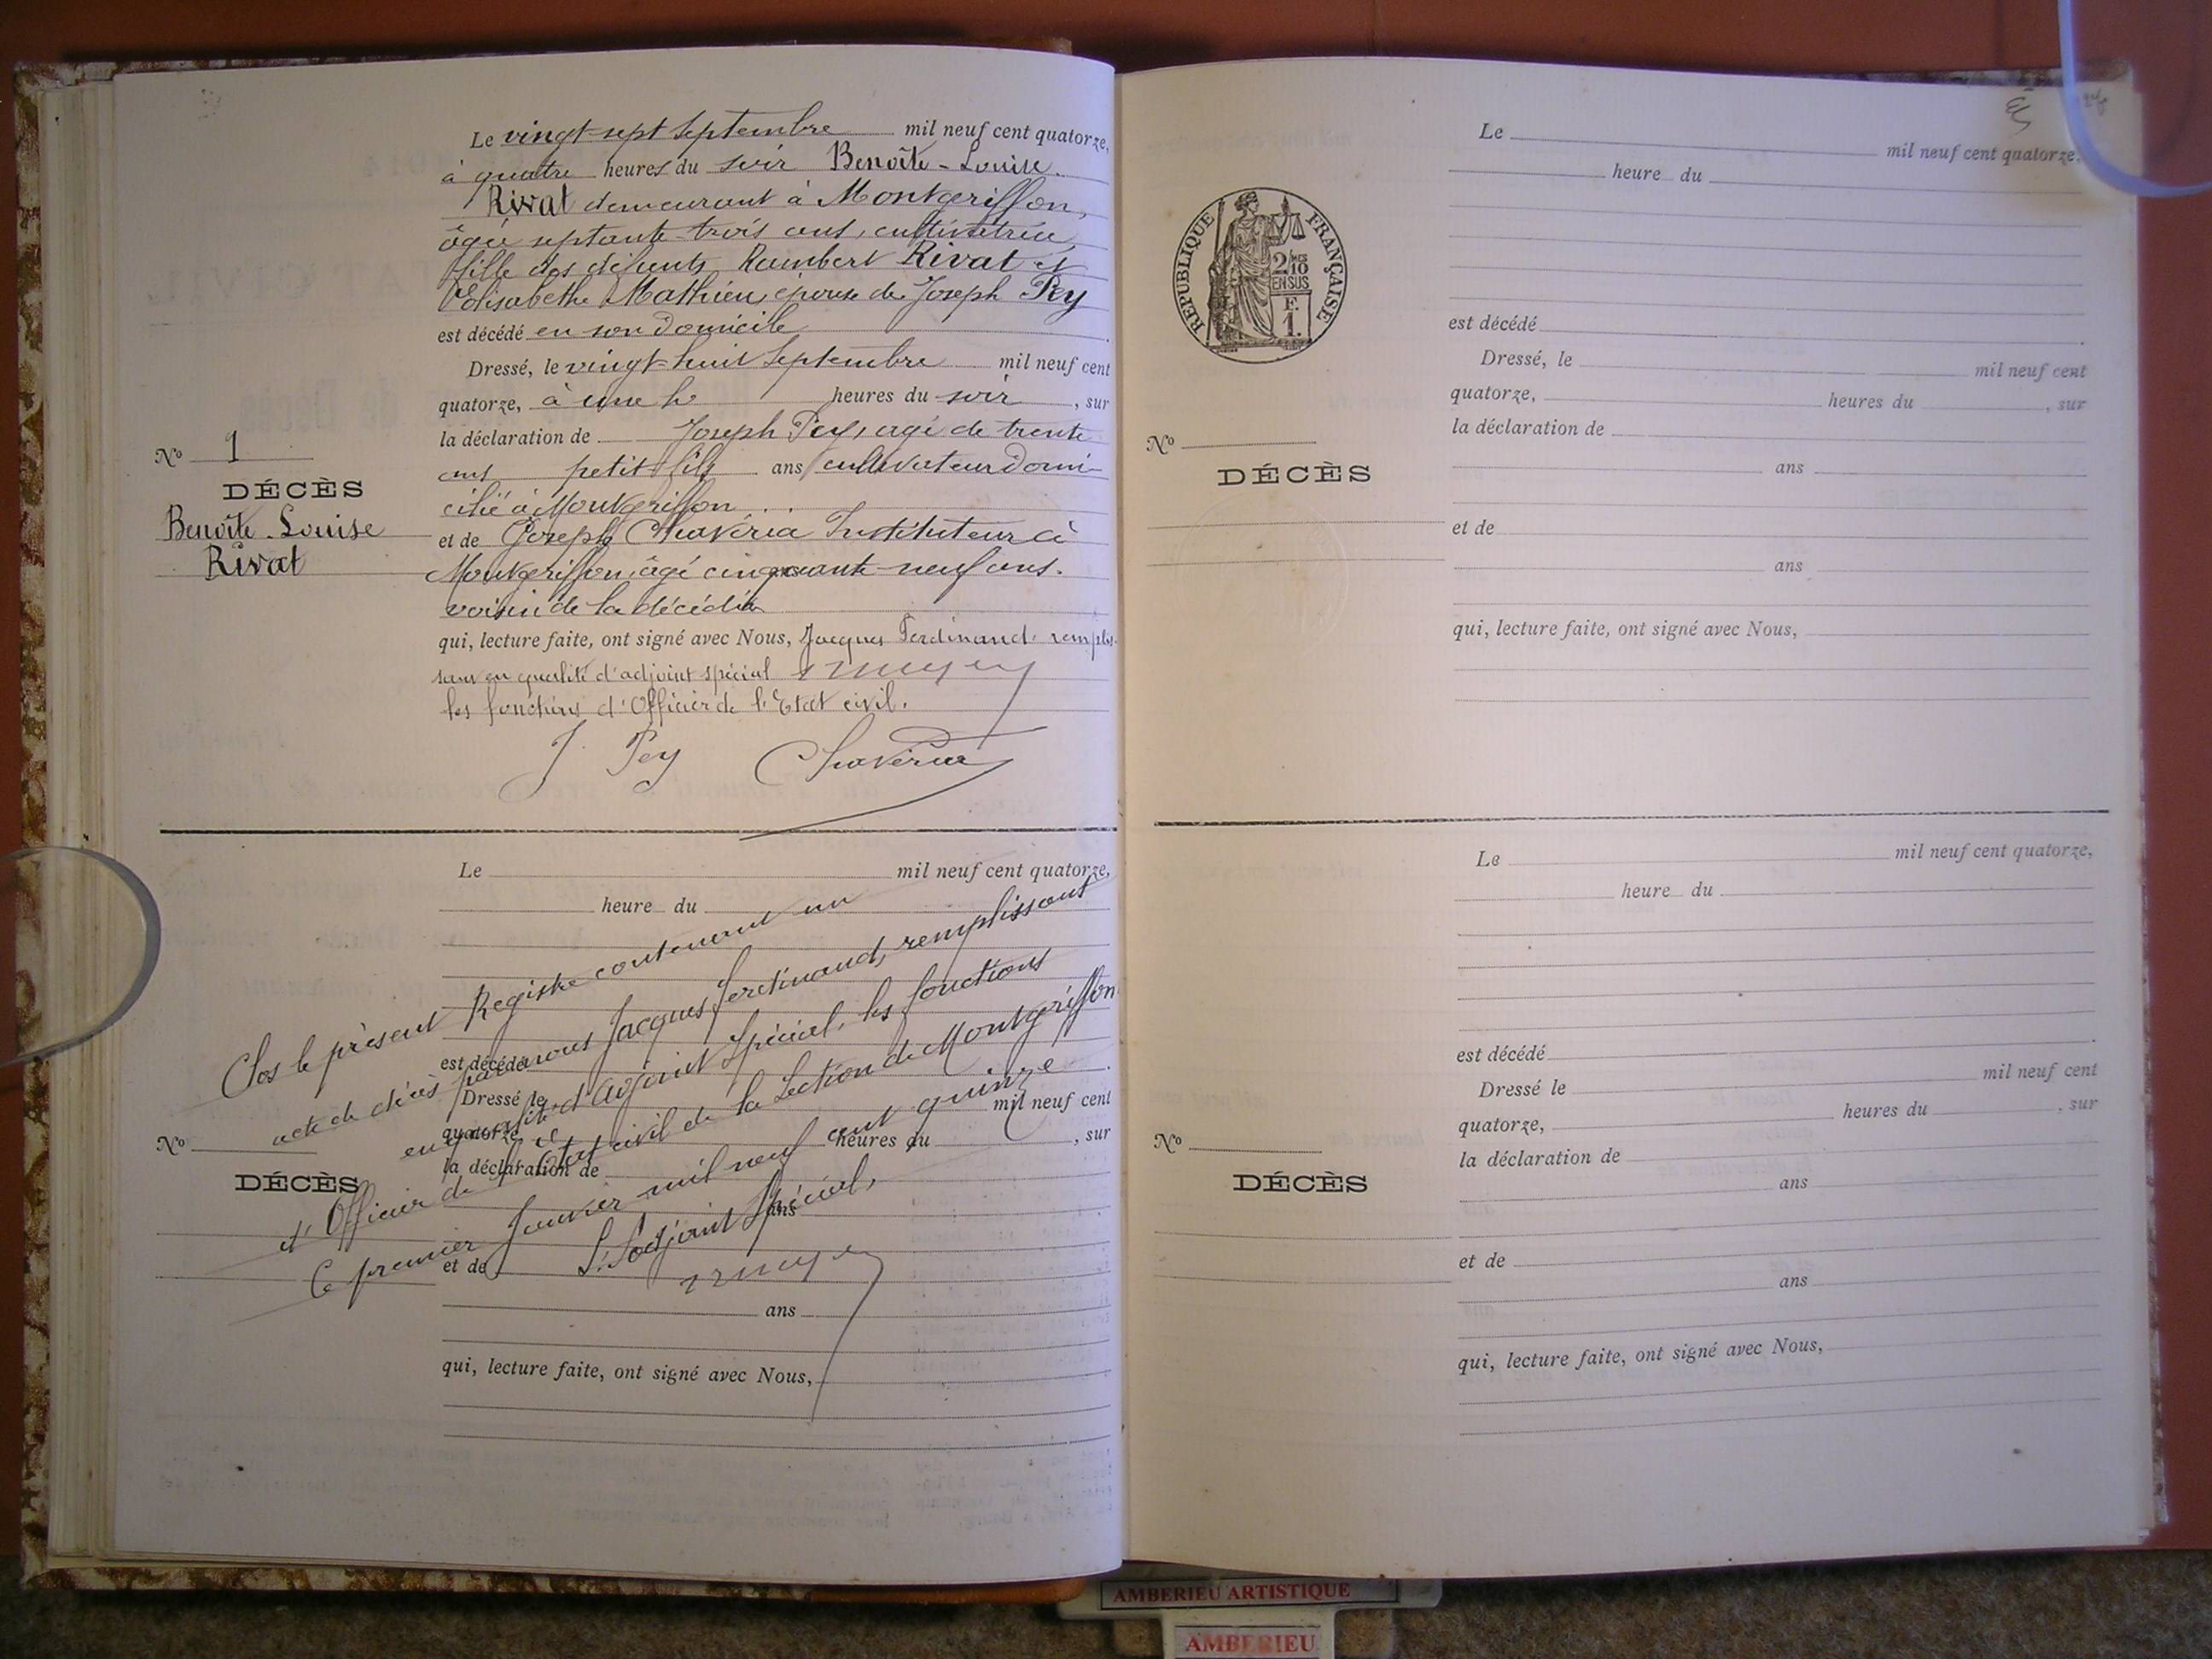 Le vingt-sept Septembre mil neuf cent quatorze,
à quatre heures du soir Benoîte-Louise
Rivat demeurant à Montgriffon,
âgée septante-trois ans, cultivatrice,
fille des défunts Rambert Rivat et
Elisabethe Mathieu, épouse de Joseph Pey
est décédé en son domicile
Dressé, le vingt-huit Septembre mil neuf cent
quatorze, à une h. heures du soir, sur
la déclaration de Joseph Pey, agé de trente
ans petit fils ans cultivateur domi-
cilié à Montgriffon
et de Joseph Chaveria Instituteur à
Montgriffon, âgé cinquante-neuf ans.
voisin de la décédée
qui, lecture faite, ont signé avec Nous, Jacques Ferdinand, remplis-
sant en qualité d'adjoint spécial
les fonctions d'Officier de l'Etat civil.
J. Pey Chaveria
No 1
DÉCÈS
Benoîte-Louise
Rivat
Le mil neuf cent quatorze,
heure du
est décédé
Dressé le mil neuf cent
quatorze, heures du , sur
la déclaration de
ans
et de
ans
qui, lecture faite, ont signé avec Nous,
No
DÉCÈS
Clos le présent Registre contenant un
acte de décès par nous Jacques Ferdinand, remplissant
en qualité d'adjoint spécial, les fonctions
d'Officier de l'Etat civil de la Section de Montgriffon
Ce premier Janvier mil neuf cent quinze
L'adjoint Spécial,
Le mil neuf cent quatorze,
heure du
RÉPUBLIQUE FRANÇAISE
2/10 EN SUS
F.
1.
est décédé
Dressé, le mil neuf cent
quatorze, heures du , sur
la déclaration de
ans
No
DÉCÈS
et de
ans
qui, lecture faite, ont signé avec Nous,
Le mil neuf cent quatorze,
heure du
est décédé
Dressé le mil neuf cent
quatorze, heures du , sur
la déclaration de
ans
No
DÉCÈS
et de
ans
qui, lecture faite, ont signé avec Nous,
AMBERIEU ARTISTIQUE
AMBERIEU